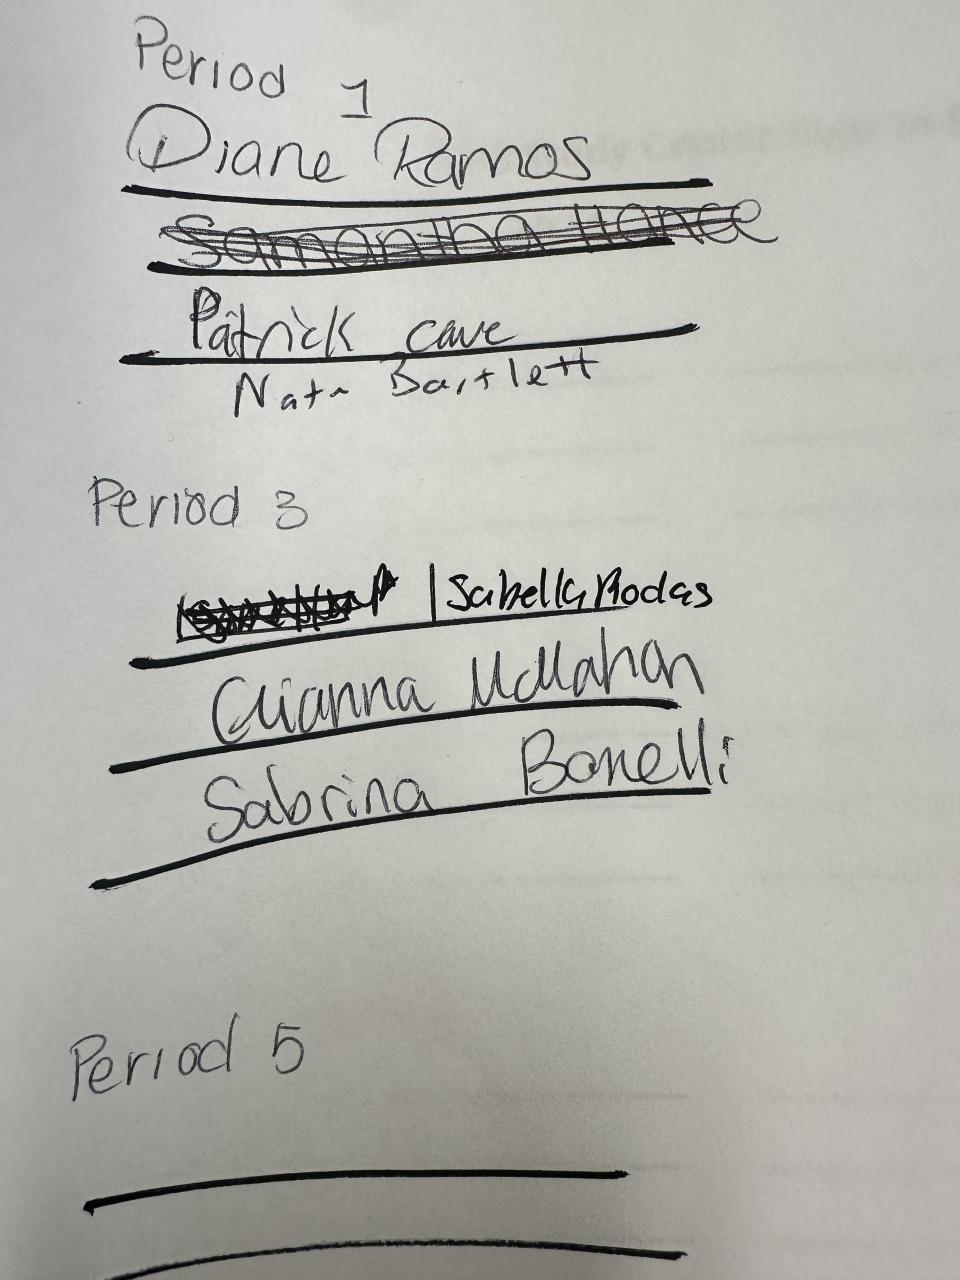 Period 1
Diane Ramos
Samantha Hance
Patrick cave
Nate Bartlett
Period 3
Isabella Rodas
Elianna McMahon
Sabrina Bonelli
Period 5